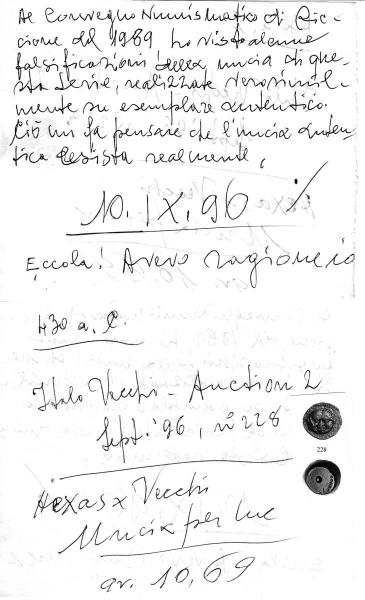 Al Convegno Numismatico di Ric-
cione del 1989 ho visto alcune
falsificazioni della uncia di que-
sta serie, realizzate verosimil-
mente su esemplare autentico.
Ciò mi fa pensare che l'uncia auten-
tica esista realmente.
10.IX.96 %
Eccola! Avevo ragione io
430 a.C.
Italo Vecchi - Auction 2
Sept. '96, n° 228
228
Hexas x Vecchi
Uncia per me
gr. 10,69